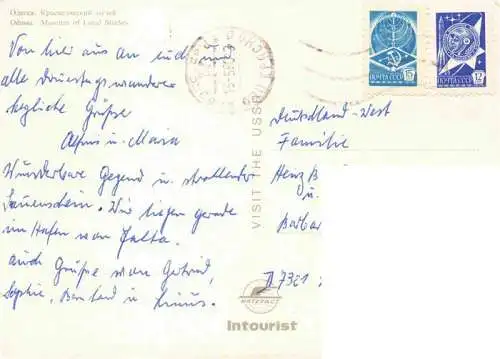 Одесса. Краеведческий музей
Odessa. Museum of Local Studies
Von hier aus an euch und
alle Donnerstagswanderer
herzliche Grüße
Alfons u. Maria
Wunderbare Gegend u. strahlender
Sonnenschein. Wir liegen gerade
im Hafen von Jalta.
auch Grüße von Gertrud,
Sophie, Bernhard u. Linus.
VISIT THE USSR
ПОЧТА СССР
ПОЧТА СССР
12
Deutschland-West
Familie
Heinz B
u.
Barbar
D 7321
ИНТУРИСТ
Intourist